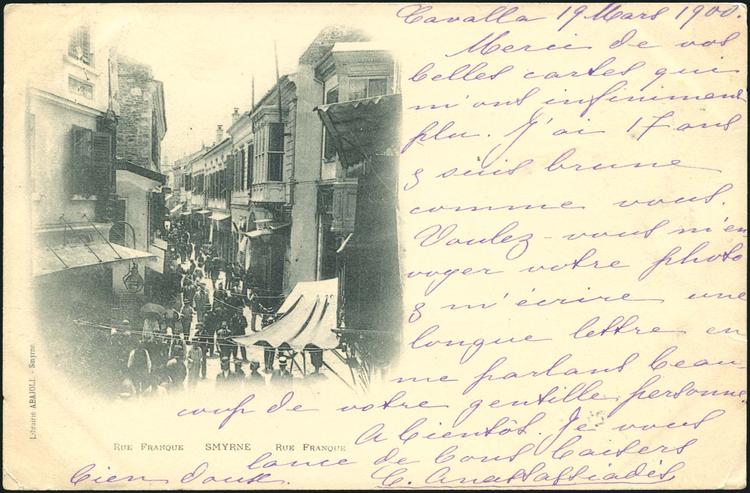 Cavalla 19 Mars 1900.
Merci de vos
belles cartes qui
m'ont infiniment
plu. J'ai 17 ans
& suis brune
comme vous.
Voulez-vous m'en
voyer votre photo
& m'écrire une
longue lettre en
me parlant beau-
coup de votre gentille personne.
A bientôt. Je vous
lance de bons baisers
bien doux. C. Anastassiadès
RUE FRANQUE SMYRNE RUE FRANQUE
Librairie ABAJOLI. - Smyrne